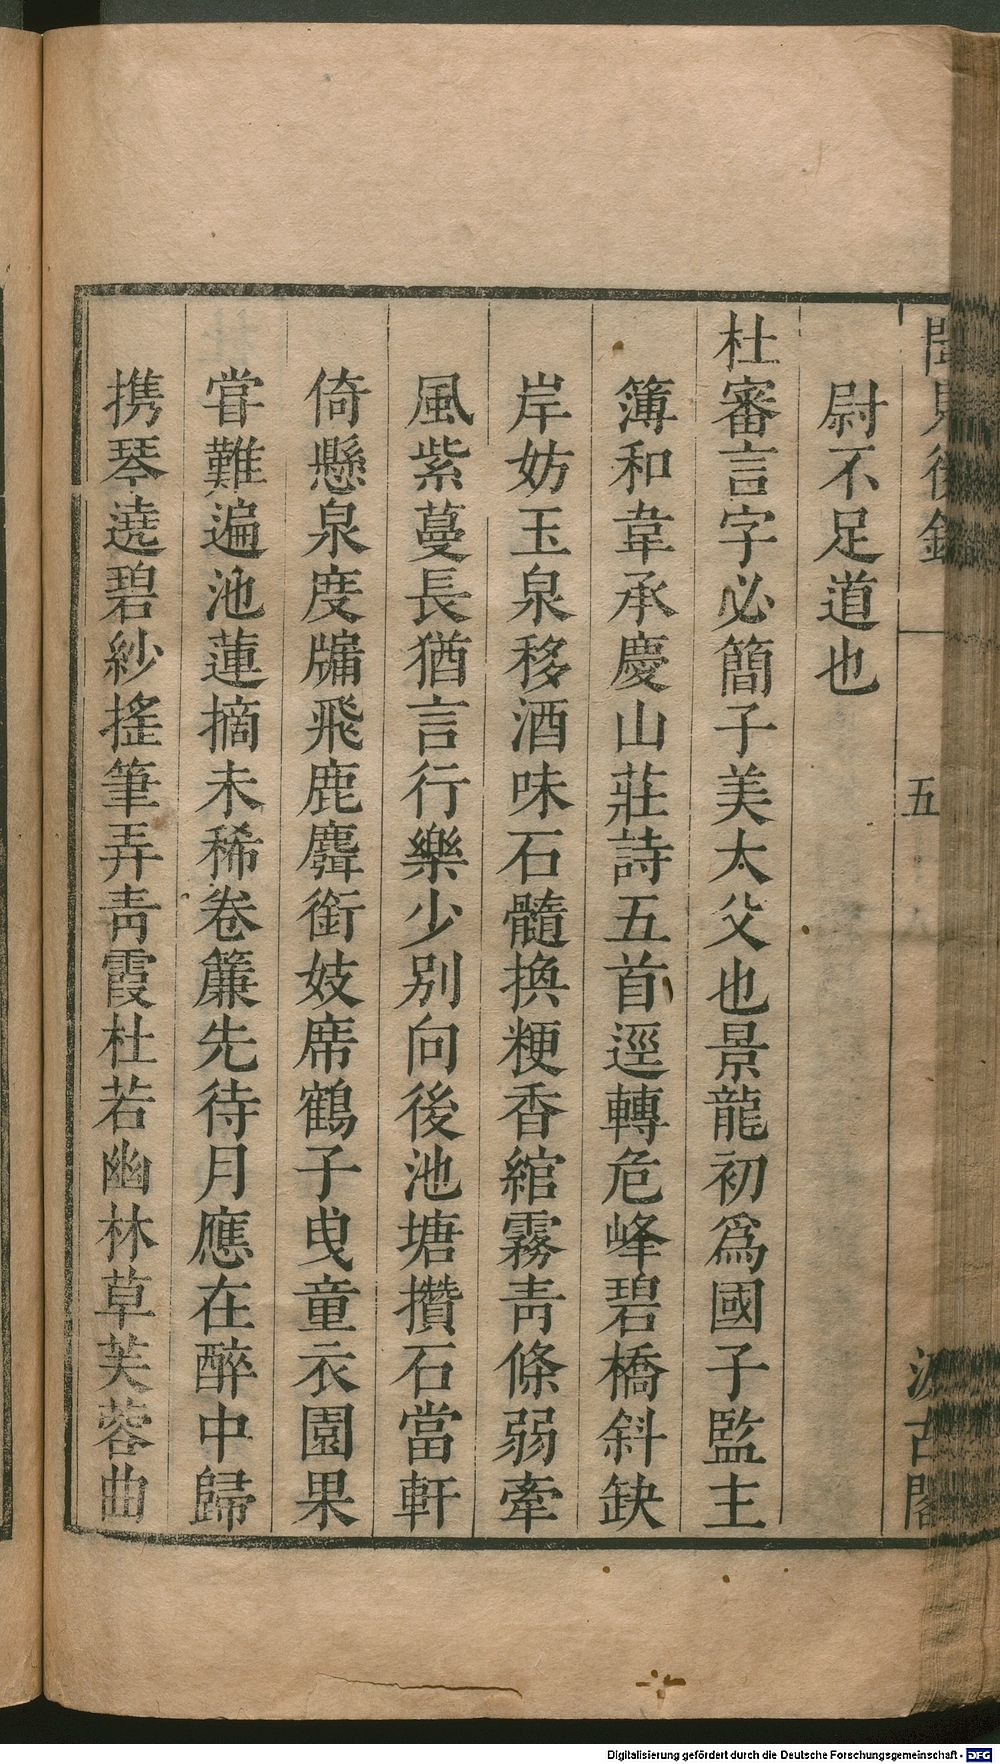 聞見後錄
五
汲古閣
尉不足道也
杜審言字必簡子美大父也景龍初爲國子監主
簿和韋承慶山莊詩五首逕轉危峰碧橋斜缺
岸妨玉泉移酒味石髓換粳香綰霧青條弱牽
風紫蔓長猶言行樂少別向後池塘攢石當軒
倚懸泉度牖飛鹿麛銜妓席鶴子曳童衣園果
甞難遍池蓮摘未稀卷簾先待月應在醉中歸
携琴遶碧紗搖筆弄青霞杜若幽林草芙蓉曲
Digitalisierung gefördert durch die Deutsche Forschungsgemeinschaft - DFG